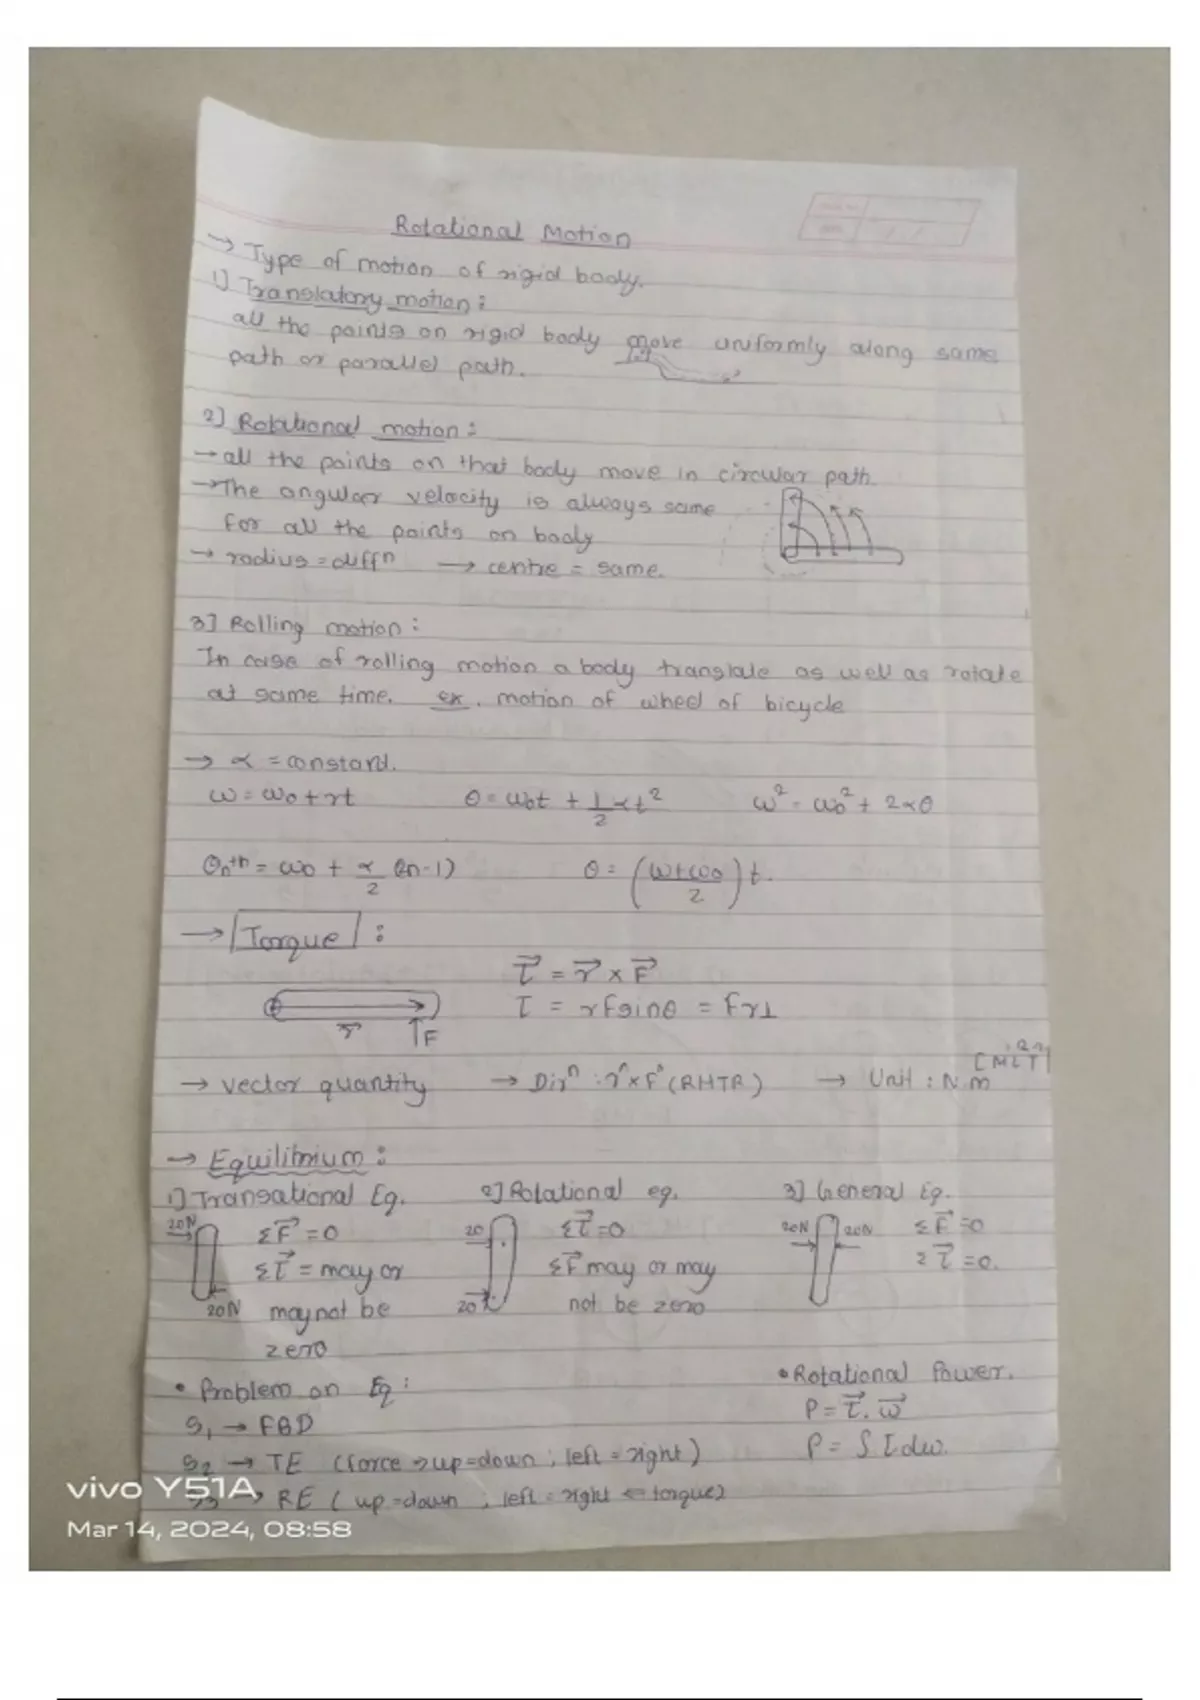 Rotational Motion
→ Type of motion of rigid body.
1) Translatory motion :
all the points on rigid body move uniformly along same
path or parallel path.
2] Rotational motion :
→ all the points on that body move in circular path.
→ The angular velocity is always same
for all the points on body
→ radius = diffⁿ → centre = same.
3] Rolling motion :
In case of rolling motion a body translate as well as rotate
at same time. ex. motion of wheel of bicycle
→ α = constant.
ω = ω₀ + αt θ = ω₀t + 1/2 αt² ω² = ω₀² + 2αθ
θₙth = ω₀ + α/2 (2n-1) θ = (ω+ω₀/2) t.
→ Torque :
τ⃗ = r⃗ × F⃗
τ = rFsinθ = Fr⊥
r⃗ F
→ vector quantity → Dirⁿ : r⃗ × F⃗ (RHTR) → Unit : N.m
→ Equilibrium :
1] Transational Eq. 2] Rotational eq. 3] General Eq.
20N ΣF⃗ = 0 20 Στ⃗ = 0 20N 20N ΣF⃗ = 0
Στ⃗ = may or ΣF⃗ may or may Στ⃗ = 0.
20N may not be 20 not be zero
zero
• Problem on Eq : • Rotational Power.
S₁ → FBD P = τ⃗. ω⃗
S₂ → TE (force → up = down ; left = right)
S₃ → RE ( up = down , left = right ← torque)
vivo Y51A
Mar 14, 2024, 08:58